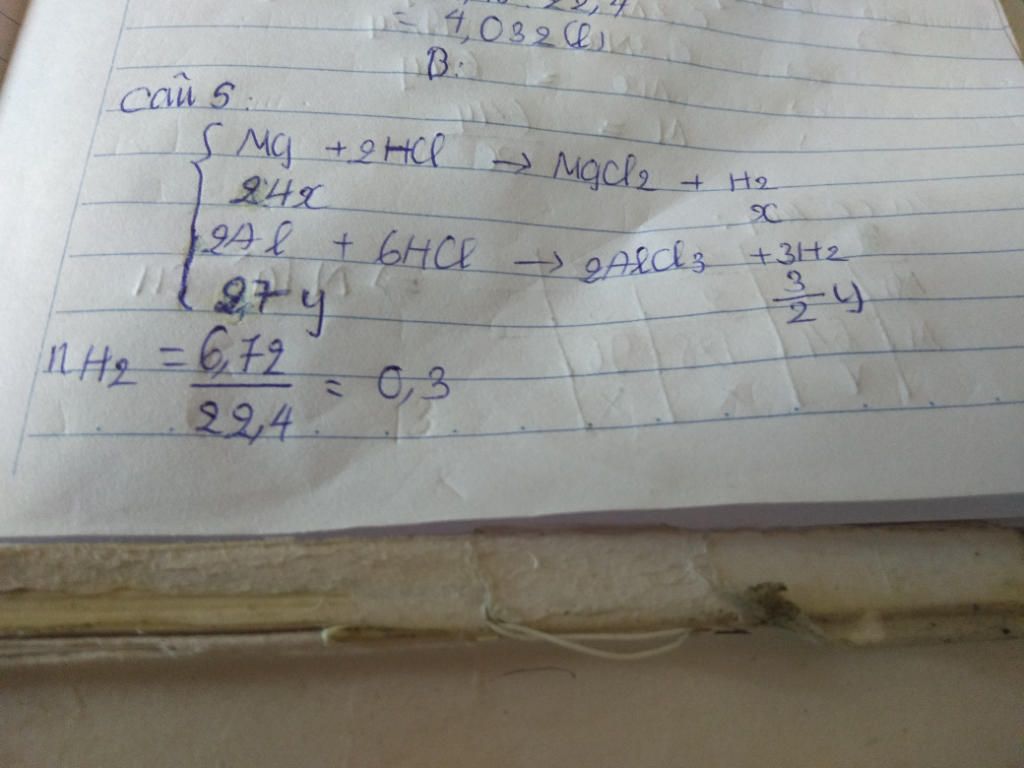 22,4
= 4,032 (l)
B:
Câu 5:
Mg + 2HCl → MgCl2 + H2
24x x
2Al + 6HCl → 2AlCl3 + 3H2
27y 3/2 y
nH2 = 6,72/22,4 = 0,3